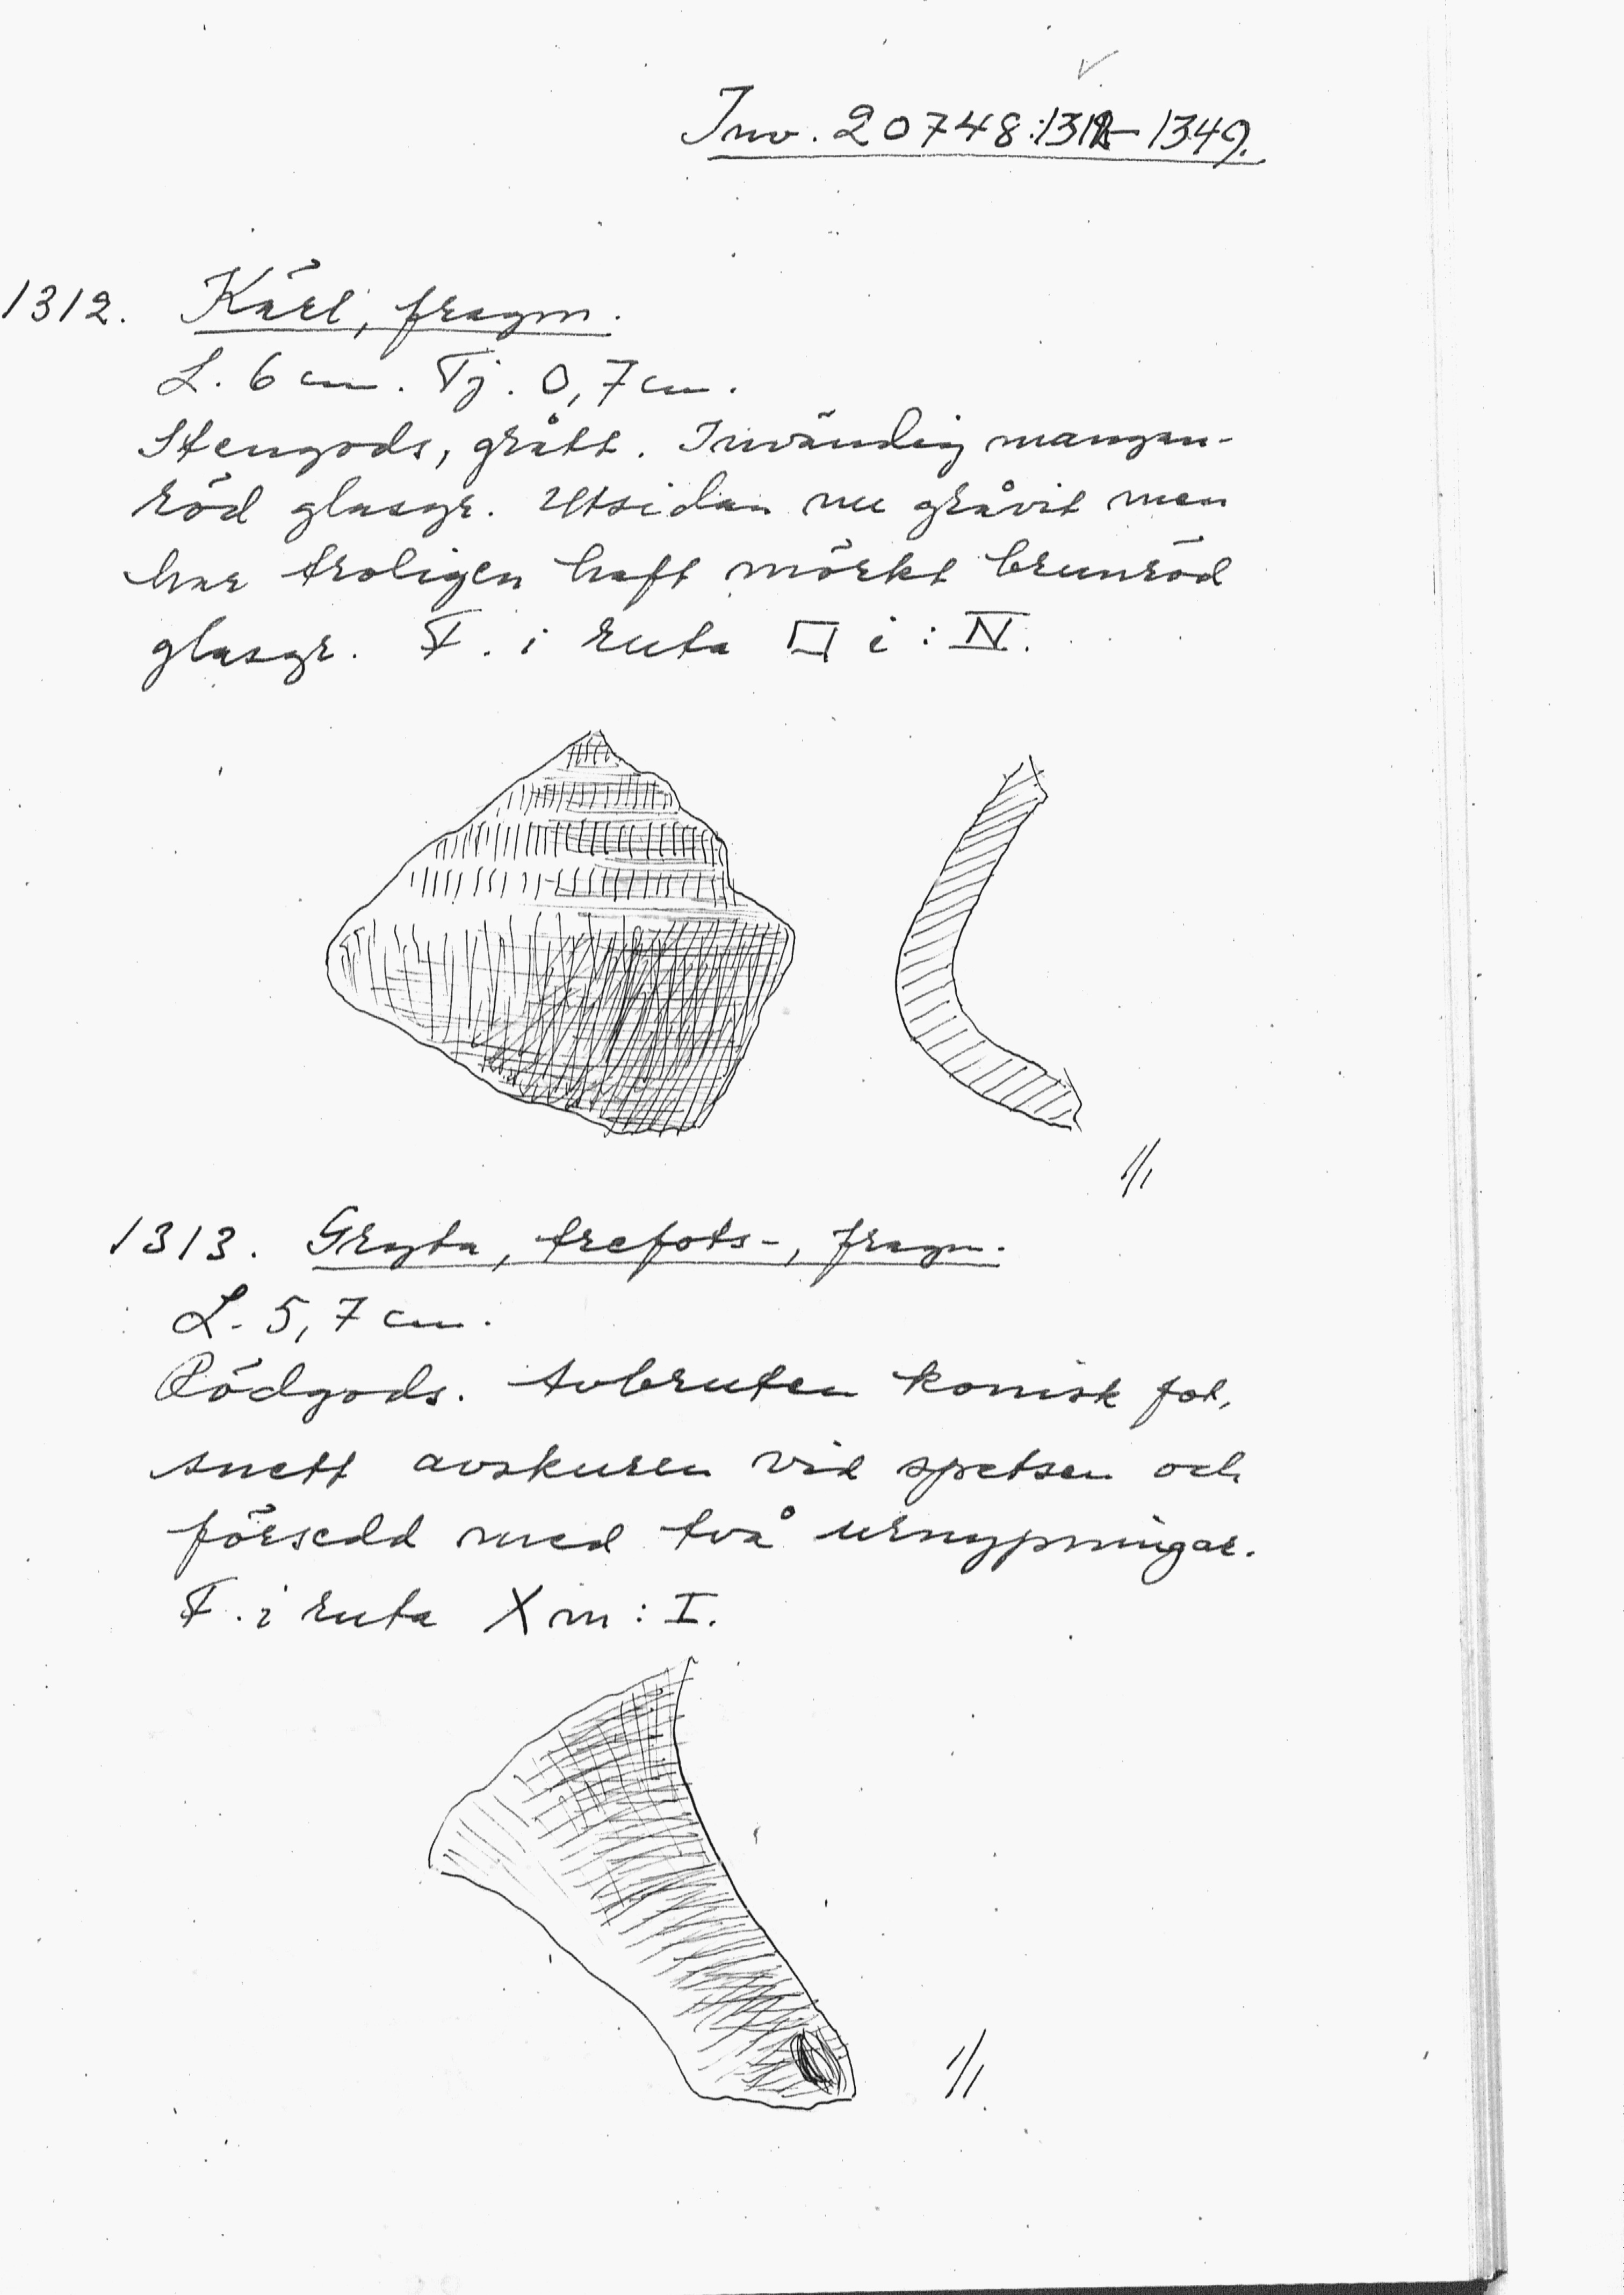 Inv. 20748:1312-1349.
1312. Kärl, fragm.
L. 6 cm. Tj. 0,7 cm.
Stengods, grått. Invändig mangan-
röd glasyr. Utsidan nu gråvit men
har troligen haft mörkt brunröd
glasyr. F. i ruta □ i : IV.
1/1
1313. Gryta, trefots-, fragm.
L. 5,7 cm.
Rödgods. Avbruten konisk fot,
snett avskuren vid spetsen och
försedd med två urnypningar.
F. i ruta X m : I.
1/1